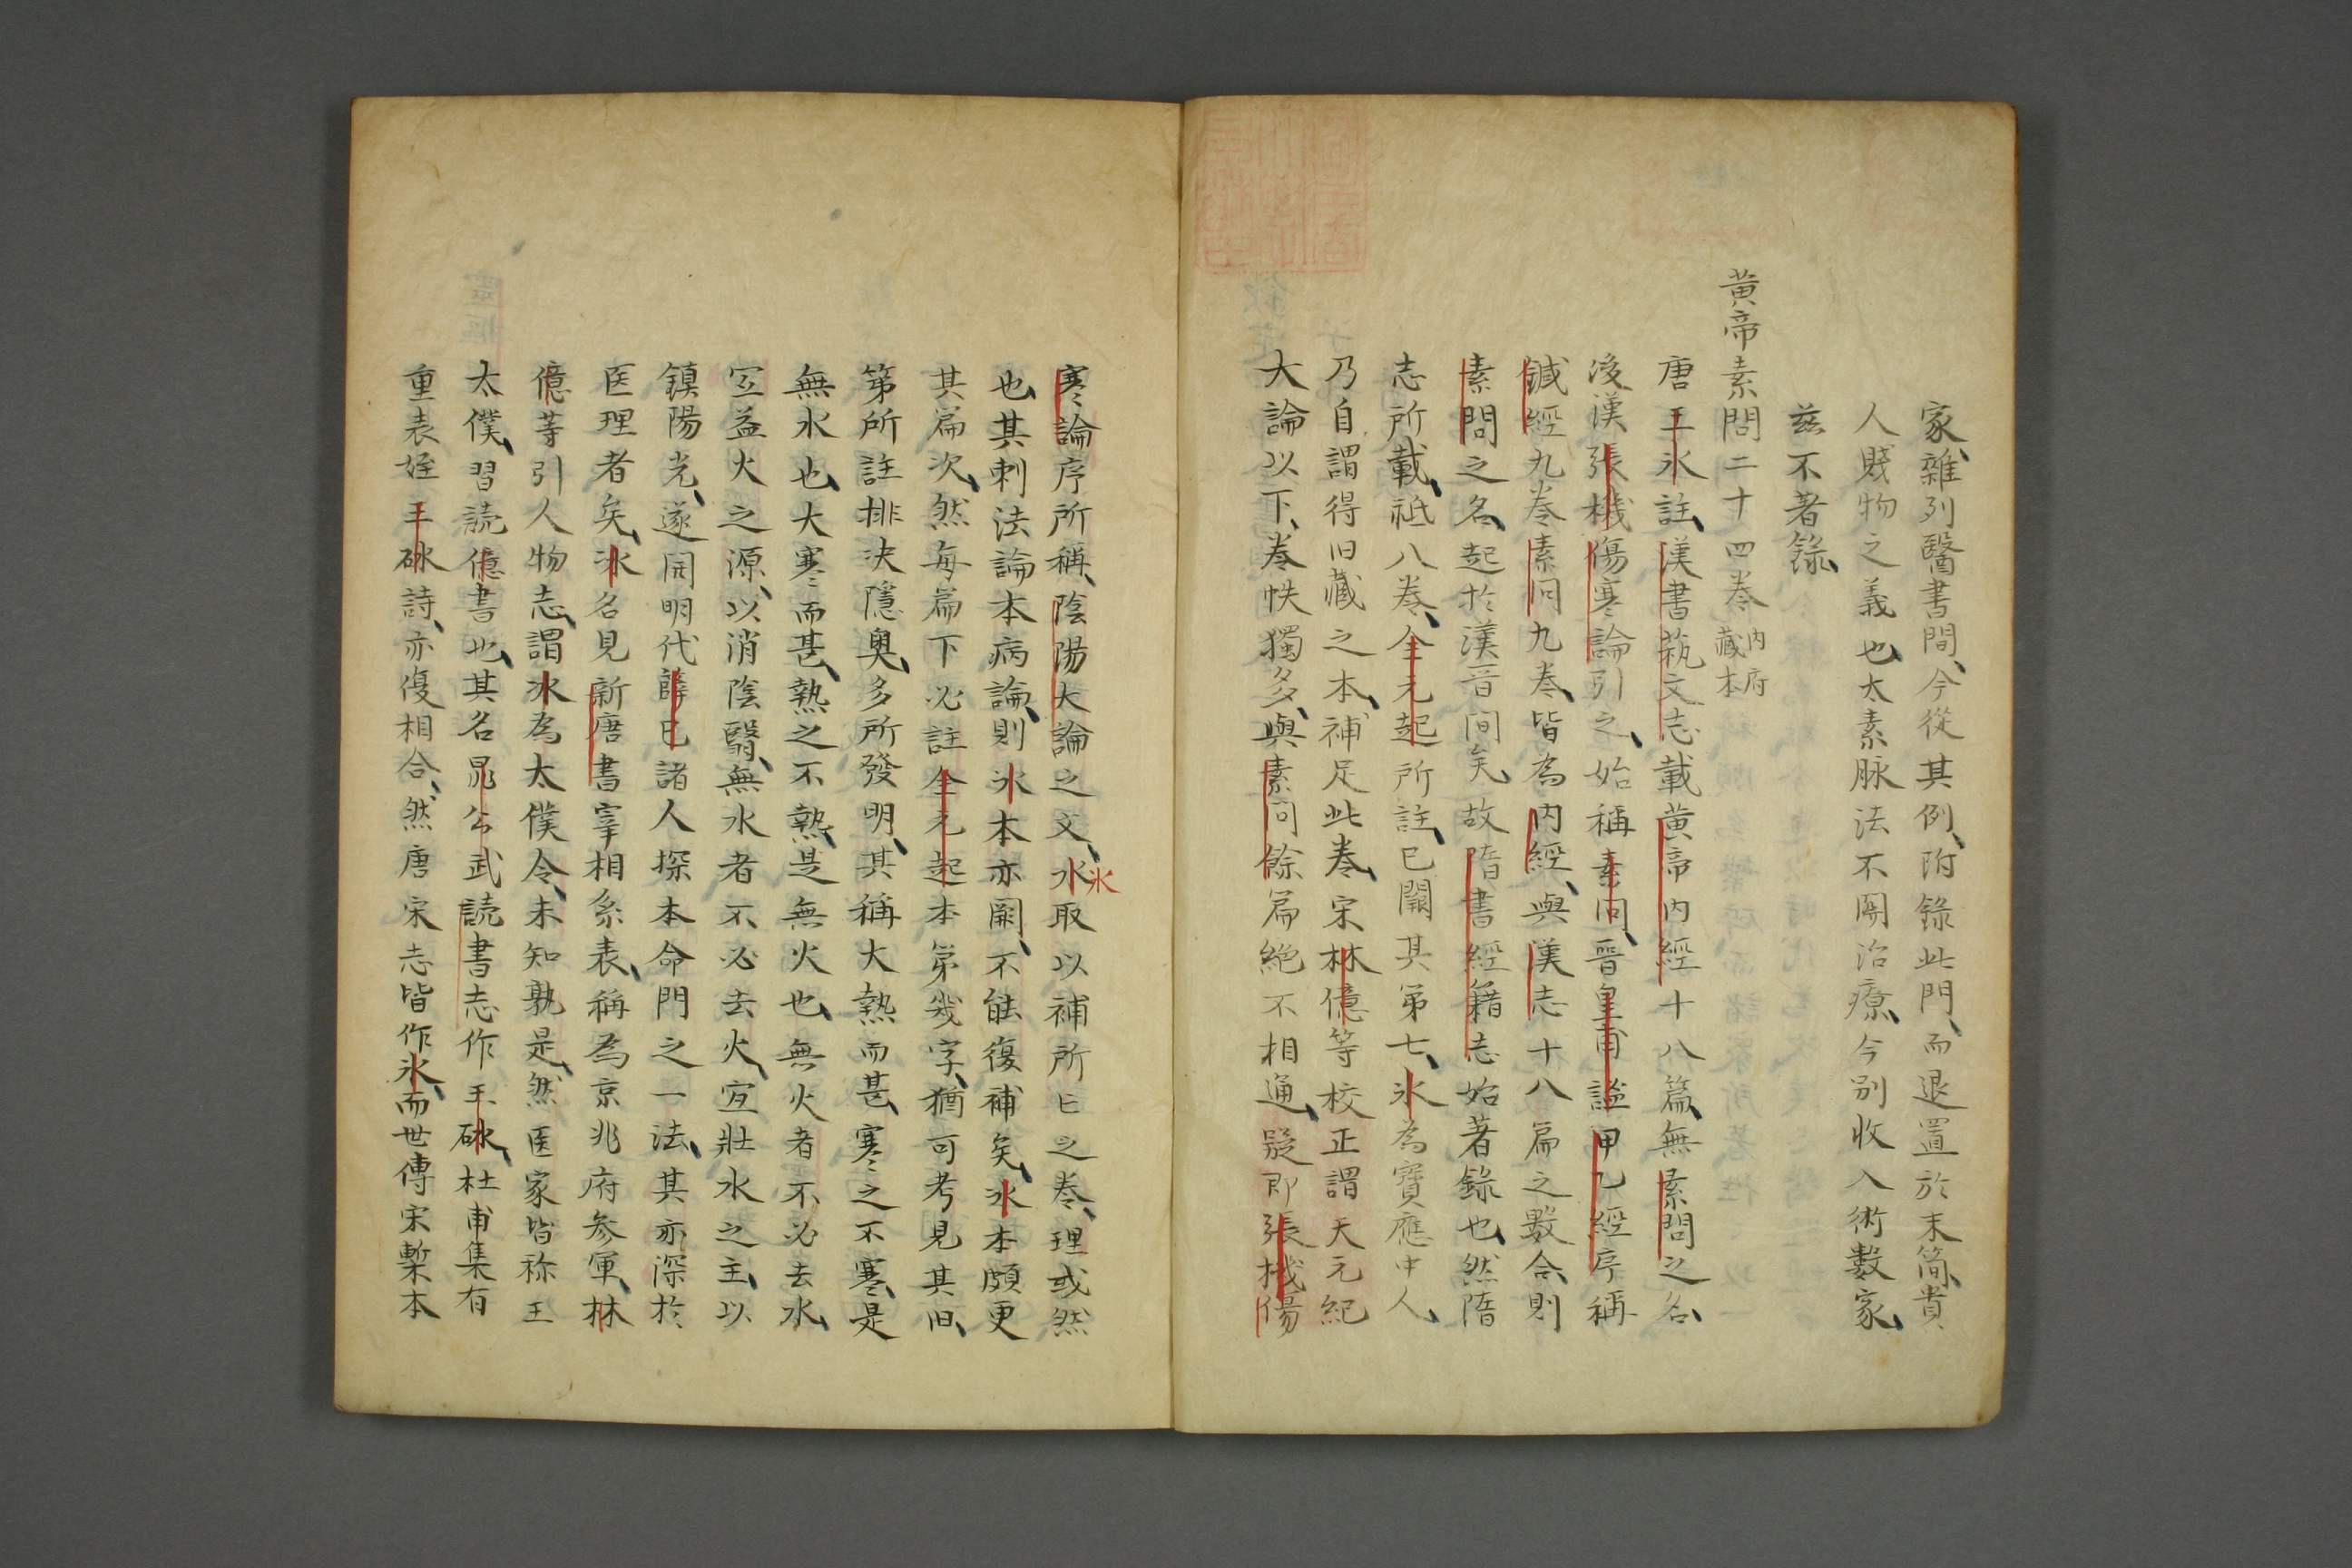 家、雜列醫書間、今從其例、附錄此門、而退置於末簡、貴
人賤物之義也、太素脉法不關治療、今別收入術數家、
茲不著錄、
黃帝素問二十四卷 內府藏本
唐王氷註、漢書萟文志載黃帝內經十八篇、無素問之名、
後漢張機傷寒論引之、始稱素問、晉皇甫謐甲乙經序稱
鍼經九卷素问九卷、皆為內經、與漢志十八篇之數合、則
素問之名、起於漢晋间矣、故隋書經籍志始著錄也、然隋
志所載、祗八卷、全元起所註、已闕其第七、氷為寶應中人、
乃自謂得旧藏之本、補足此卷、宋林億等校正謂天元紀
大論以下、卷帙獨多、與素问餘篇絶不相通、疑即張機傷
寒論序所稱、陰陽大論之文、水取以補所亡之卷、理或然
氷
也、其刺法論本病論、則氷本亦闕、不能復補矣、氷本頗更
其篇次、然每篇下必註全元起本第幾字、猶可考見其旧、
第所註排決隱奥、多所發明、其稱大熱而甚、寒之不寒、是
無水也、大寒而甚、熱之不熱、是無火也、無火者不必去水、
宜益火之源、以消陰翳、無水者不必去火、宜壯水之主、以
鎮陽光、遂開明代薛已諸人探本命門之一法、其亦深於
医理者矣、氷名見新唐書宰相系表、稱為京兆府参軍、林
億等引人物志、謂氷為太僕令、未知孰是、然医家皆称王
太僕、習読億書也、其名晁公武読書志作王砯、杜甫集有
重表姪王砯詩、亦復相合、然唐宋志皆作氷、而世傳宋槧本